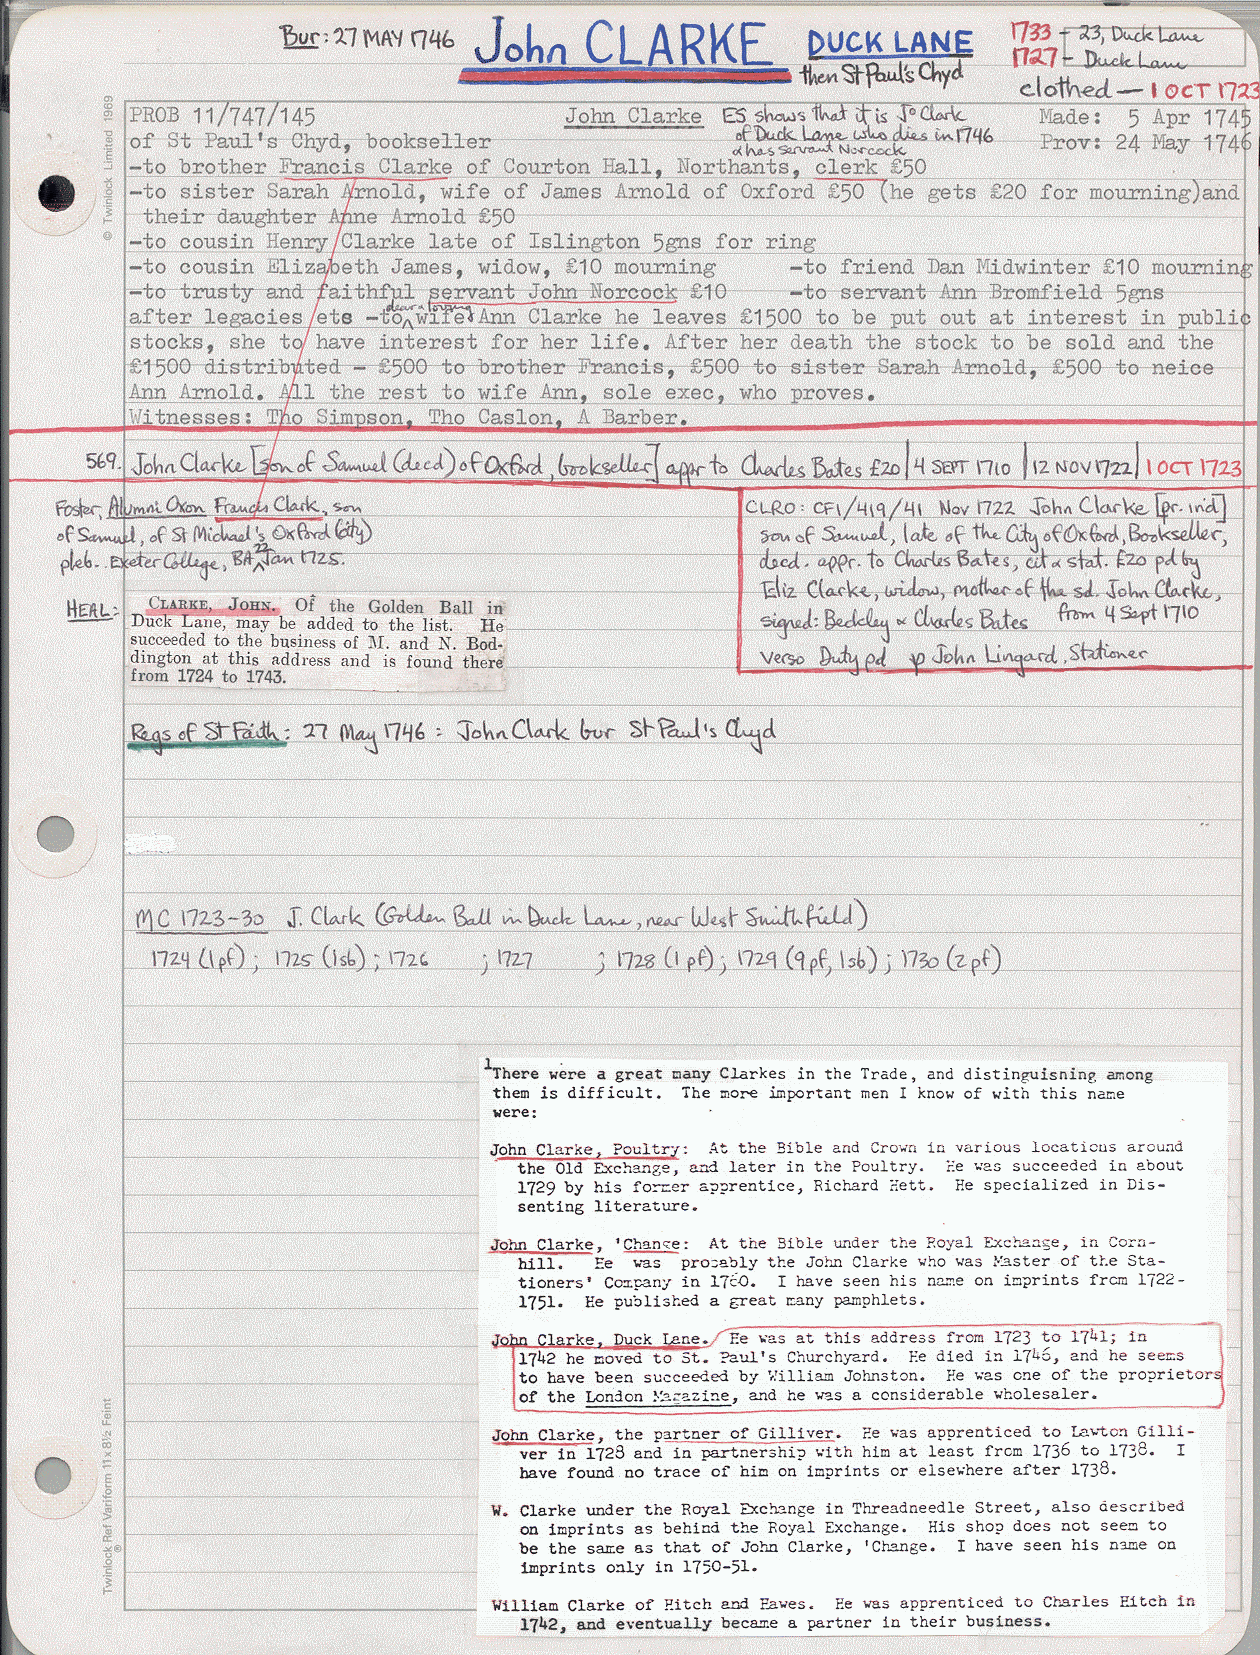 Bur: 27 MAY 1746
John CLARKE
DUCK LANE
then St Paul's Chyd
1733 - 23, Duck Lane
1727 - Duck Lane
clothed — 1 OCT 1723
© Twinlock Limited 1969
PROB 11/747/145 John Clarke Made: 5 Apr 1745
ES shows that it is Jo Clark
of Duck Lane who dies in 1746
& has servant Norcock
of St Paul's Chyd, bookseller Prov: 24 May 1746
-to brother Francis Clarke of Courton Hall, Northants, clerk £50
-to sister Sarah Arnold, wife of James Arnold of Oxford £50 (he gets £20 for mourning)and
their daughter Anne Arnold £50
-to cousin Henry Clarke late of Islington 5gns for ring
-to cousin Elizabeth James, widow, £10 mourning -to friend Dan Midwinter £10 mourning
-to trusty and faithful servant John Norcock £10 -to servant Ann Bromfield 5gns
after legacies etc -to dear & loving wife Ann Clarke he leaves £1500 to be put out at interest in public
stocks, she to have interest for her life. After her death the stock to be sold and the
£1500 distributed - £500 to brother Francis, £500 to sister Sarah Arnold, £500 to neice
Ann Arnold. All the rest to wife Ann, sole exec, who proves.
Witnesses: Tho Simpson, Tho Caslon, A Barber.
569. John Clarke [son of Samuel (decd) of Oxford, bookseller] appr to Charles Bates £20 | 4 SEPT 1710 | 12 NOV 1722 | 1 OCT 1723
Foster, Alumni Oxon Francis Clark, son
of Samuel, of St Michael's Oxford (city)
pleb. Exeter College, BA 22 Jan 1725.
CLRO: CF1/419/41 Nov 1722 John Clarke [pr. ind]
son of Samuel, late of the City of Oxford, Bookseller,
decd. appr. to Charles Bates, cit & stat. £20 pd by
Eliz Clarke, widow, mother of the sd. John Clarke,
signed: Beckley & Charles Bates from 4 Sept 1710
verso Duty pd p John Lingard, Stationer
HEAL:
CLARKE, JOHN. Of the Golden Ball in
Duck Lane, may be added to the list. He
succeeded to the business of M. and N. Bod-
dington at this address and is found there
from 1724 to 1743.
Regs of St Faith: 27 May 1746: John Clark bur St Paul's Chyd
MC 1723-30 J. Clark (Golden Ball in Duck Lane, near West Smithfield)
1724 (1pf); 1725 (1sb); 1726 ; 1727 ; 1728 (1pf); 1729 (9pf, 1sb); 1730 (2pf)
1There were a great many Clarkes in the Trade, and distinguisning among
them is difficult. The more important men I know of with this name
were:
John Clarke, Poultry: At the Bible and Crown in various locations around
the Old Exchange, and later in the Poultry. He was succeeded in about
1729 by his former apprentice, Richard Hett. He specialized in Dis-
senting literature.
John Clarke, 'Change: At the Bible under the Royal Exchange, in Corn-
hill. He was probably the John Clarke who was Master of the Sta-
tioners' Company in 1760. I have seen his name on imprints from 1722-
1751. He published a great many pamphlets.
John Clarke, Duck Lane. He was at this address from 1723 to 1741; in
1742 he moved to St. Paul's Churchyard. He died in 1746, and he seems
to have been succeeded by William Johnston. He was one of the proprietors
of the London Magazine, and he was a considerable wholesaler.
John Clarke, the partner of Gilliver. He was apprenticed to Lawton Gilli-
ver in 1728 and in partnership with him at least from 1736 to 1738. I
have found no trace of him on imprints or elsewhere after 1738.
W. Clarke under the Royal Exchange in Threadneedle Street, also described
on imprints as behind the Royal Exchange. His shop does not seem to
be the same as that of John Clarke, 'Change. I have seen his name on
imprints only in 1750-51.
William Clarke of Hitch and Hawes. He was apprenticed to Charles Hitch in
1742, and eventually became a partner in their business.
Twinlock Ref Variform 11 x 8½ Feint
®